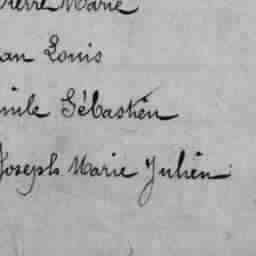 Pierre Marie
an Louis
mile Sébastien
Joseph Marie Julien